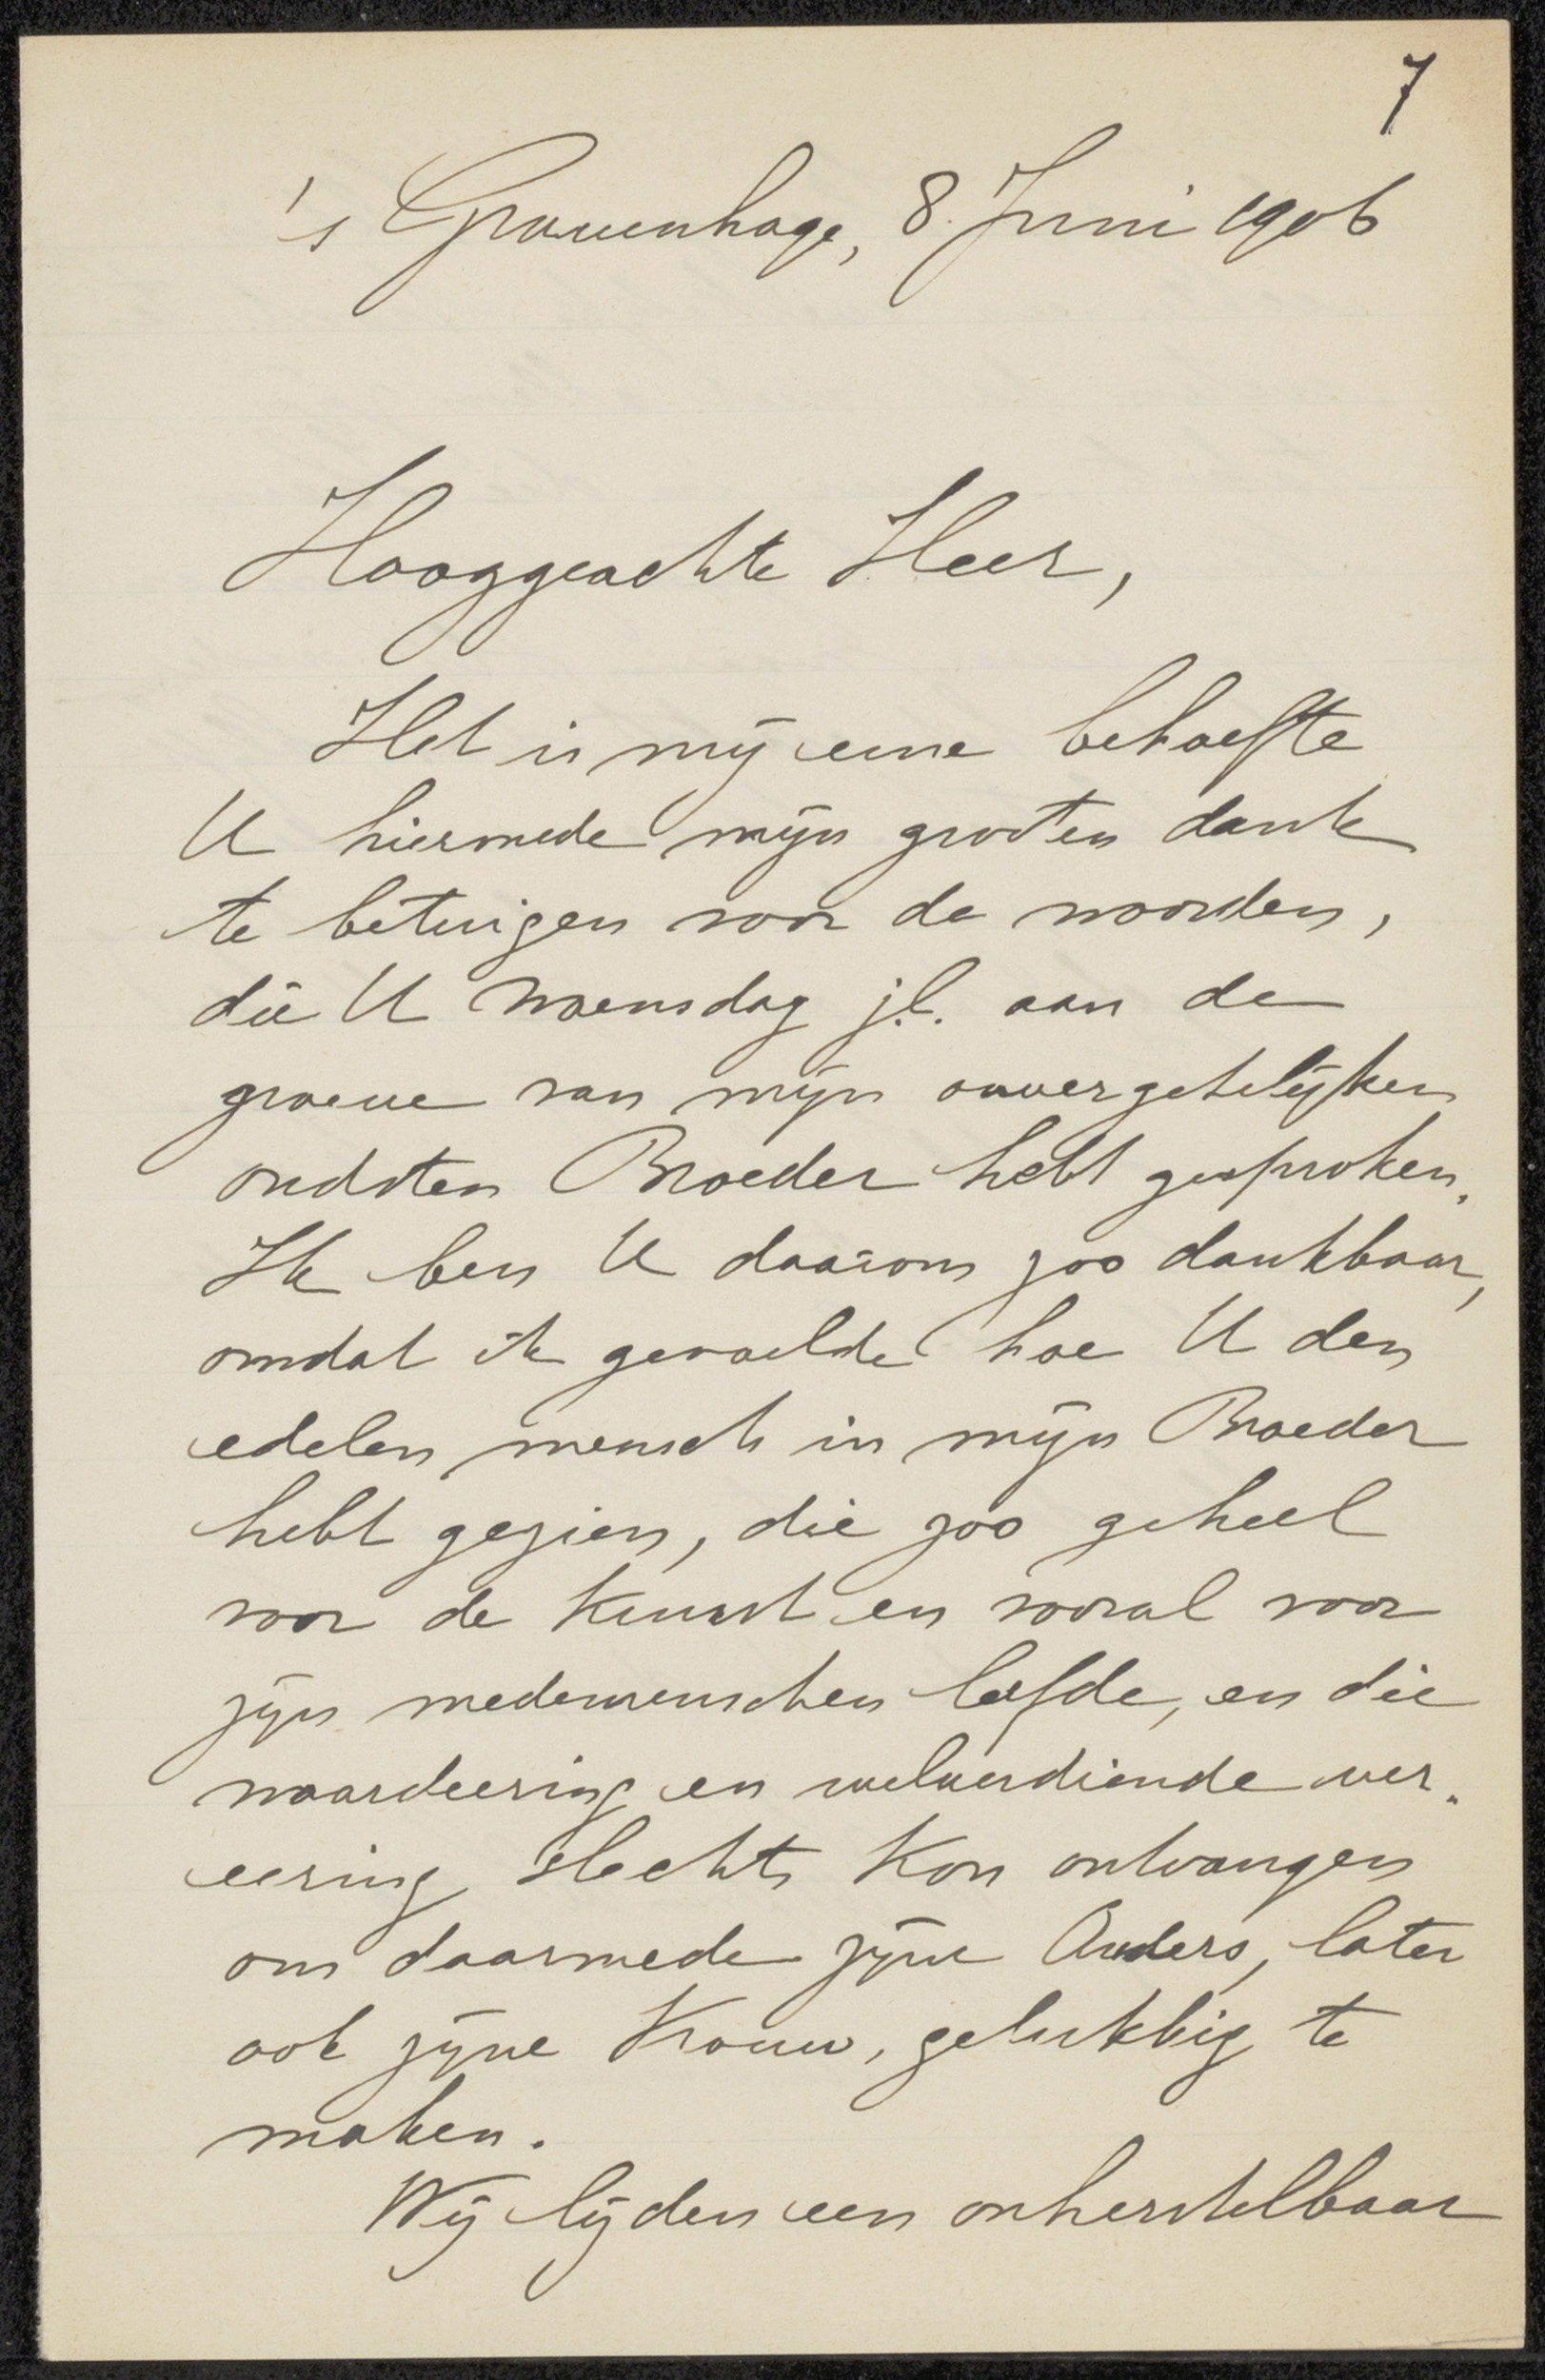 7
's Gravenhage, 8 Juni 1906
Hooggeachte Heer,
Het is mij eene behoefte
U hiermede mijn grooten dank
te betuigen voor de woorden,
die U Woensdag j.l. aan de
groeve van mijn onvergetelijken
oudsten Broeder hebt gesproken.
Ik ben U daarom zoo dankbaar,
omdat ik gevoelde hoe U den
edelen mensch in mijn Broeder
hebt gezien, die zoo geheel
voor de Kunst en vooral voor
zijn medemenschen leefde, en die
waardeering en welverdiende ver-
eering slechts kon ontvangen
om daarmede zijne Ouders, later
ook zijne Vrouw, gelukkig te
maken.
Wij lijden een onherstelbaar